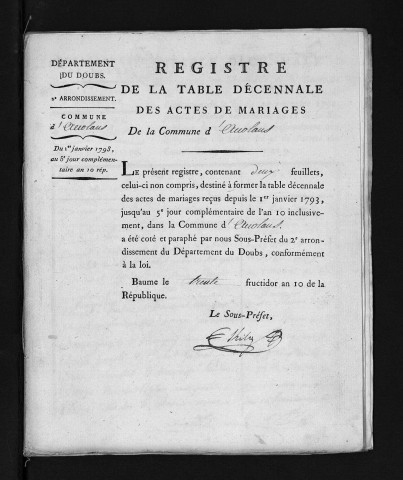 DÉPARTEMENT
DU DOUBS.
2e ARRONDISSEMENT.
COMMUNE
d'
Du 1er janvier 1793,
au 5e jour complémen-
taire an 10 rép.
REGISTRE
DE LA TABLE DÉCENNALE
DES ACTES DE MARIAGES
De la Commune d'
LE présent registre, contenant deux feuillets,
celui-ci non compris, destiné à former la table décennale
des actes de mariages reçus depuis le 1er janvier 1793,
jusqu'au 5e jour complémentaire de l'an 10 inclusive-
ment, dans la Commune d'
a été coté et paraphé par nous Sous-Préfet du 2e arron-
dissement du Département du Doubs, conformément
à la loi.
Baume le trente fructidor an 10 de la
République.
Le Sous-Préfet,